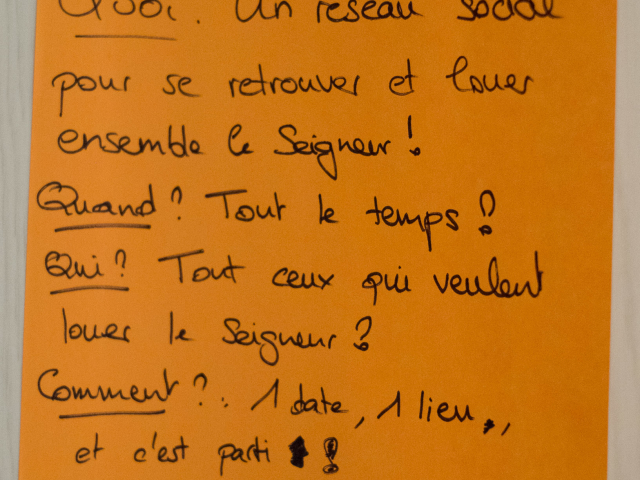 Quoi. Un réseau social
pour se retrouver et louer
ensemble le Seigneur !
Quand ? Tout le temps ?
Qui ? Tout ceux qui veulent
louer le Seigneur ?
Comment ? : 1 date, 1 lieu..,
et c'est parti !